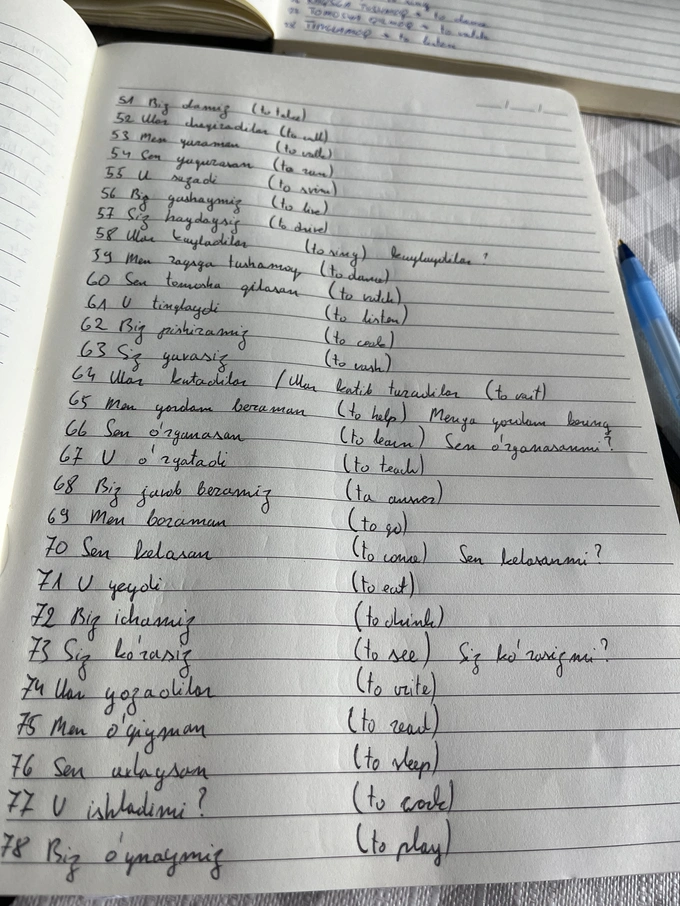 TOMOSHA QILMOQ + to watch
TINGLAMOQ + to listen
51 Biz (to take)
52 Ular chaqiradilar (to call)
53 Men yuraman (to walk)
54 Sen yugurasan (to run)
55 U suzadi (to swim)
56 Biz yashaymiz (to live)
57 Siz haydaysiz (to drive)
58 Ular kuyladilar (to sing) kuylaydilar?
59 Men raqsga tushaman (to dance)
60 Sen tomosha qilasan (to watch)
61 U tinglaydi (to listen)
62 Biz pishiramiz (to cook)
63 Siz yuvasiz (to wash)
64 Ular kutadilar / Ular kutib turadilar (to wait)
65 Men yordam beraman (to help) Menga yordam bering
66 Sen o'rganasan (to learn) Sen o'rganasanmi?
67 U o'rgatadi (to teach)
68 Biz javob beramiz (to answer)
69 Men boraman (to go)
70 Sen kelasan (to come) Sen kelasanmi?
71 U yeydi (to eat)
72 Biz ichamiz (to drink)
73 Siz ko'rasiz (to see) Siz ko'rasizmi?
74 Ular yozadilar (to write)
75 Men o'qiyman (to read)
76 Sen uxlaysan (to sleep)
77 U ishladimi? (to work)
78 Biz o'ynaymiz (to play)